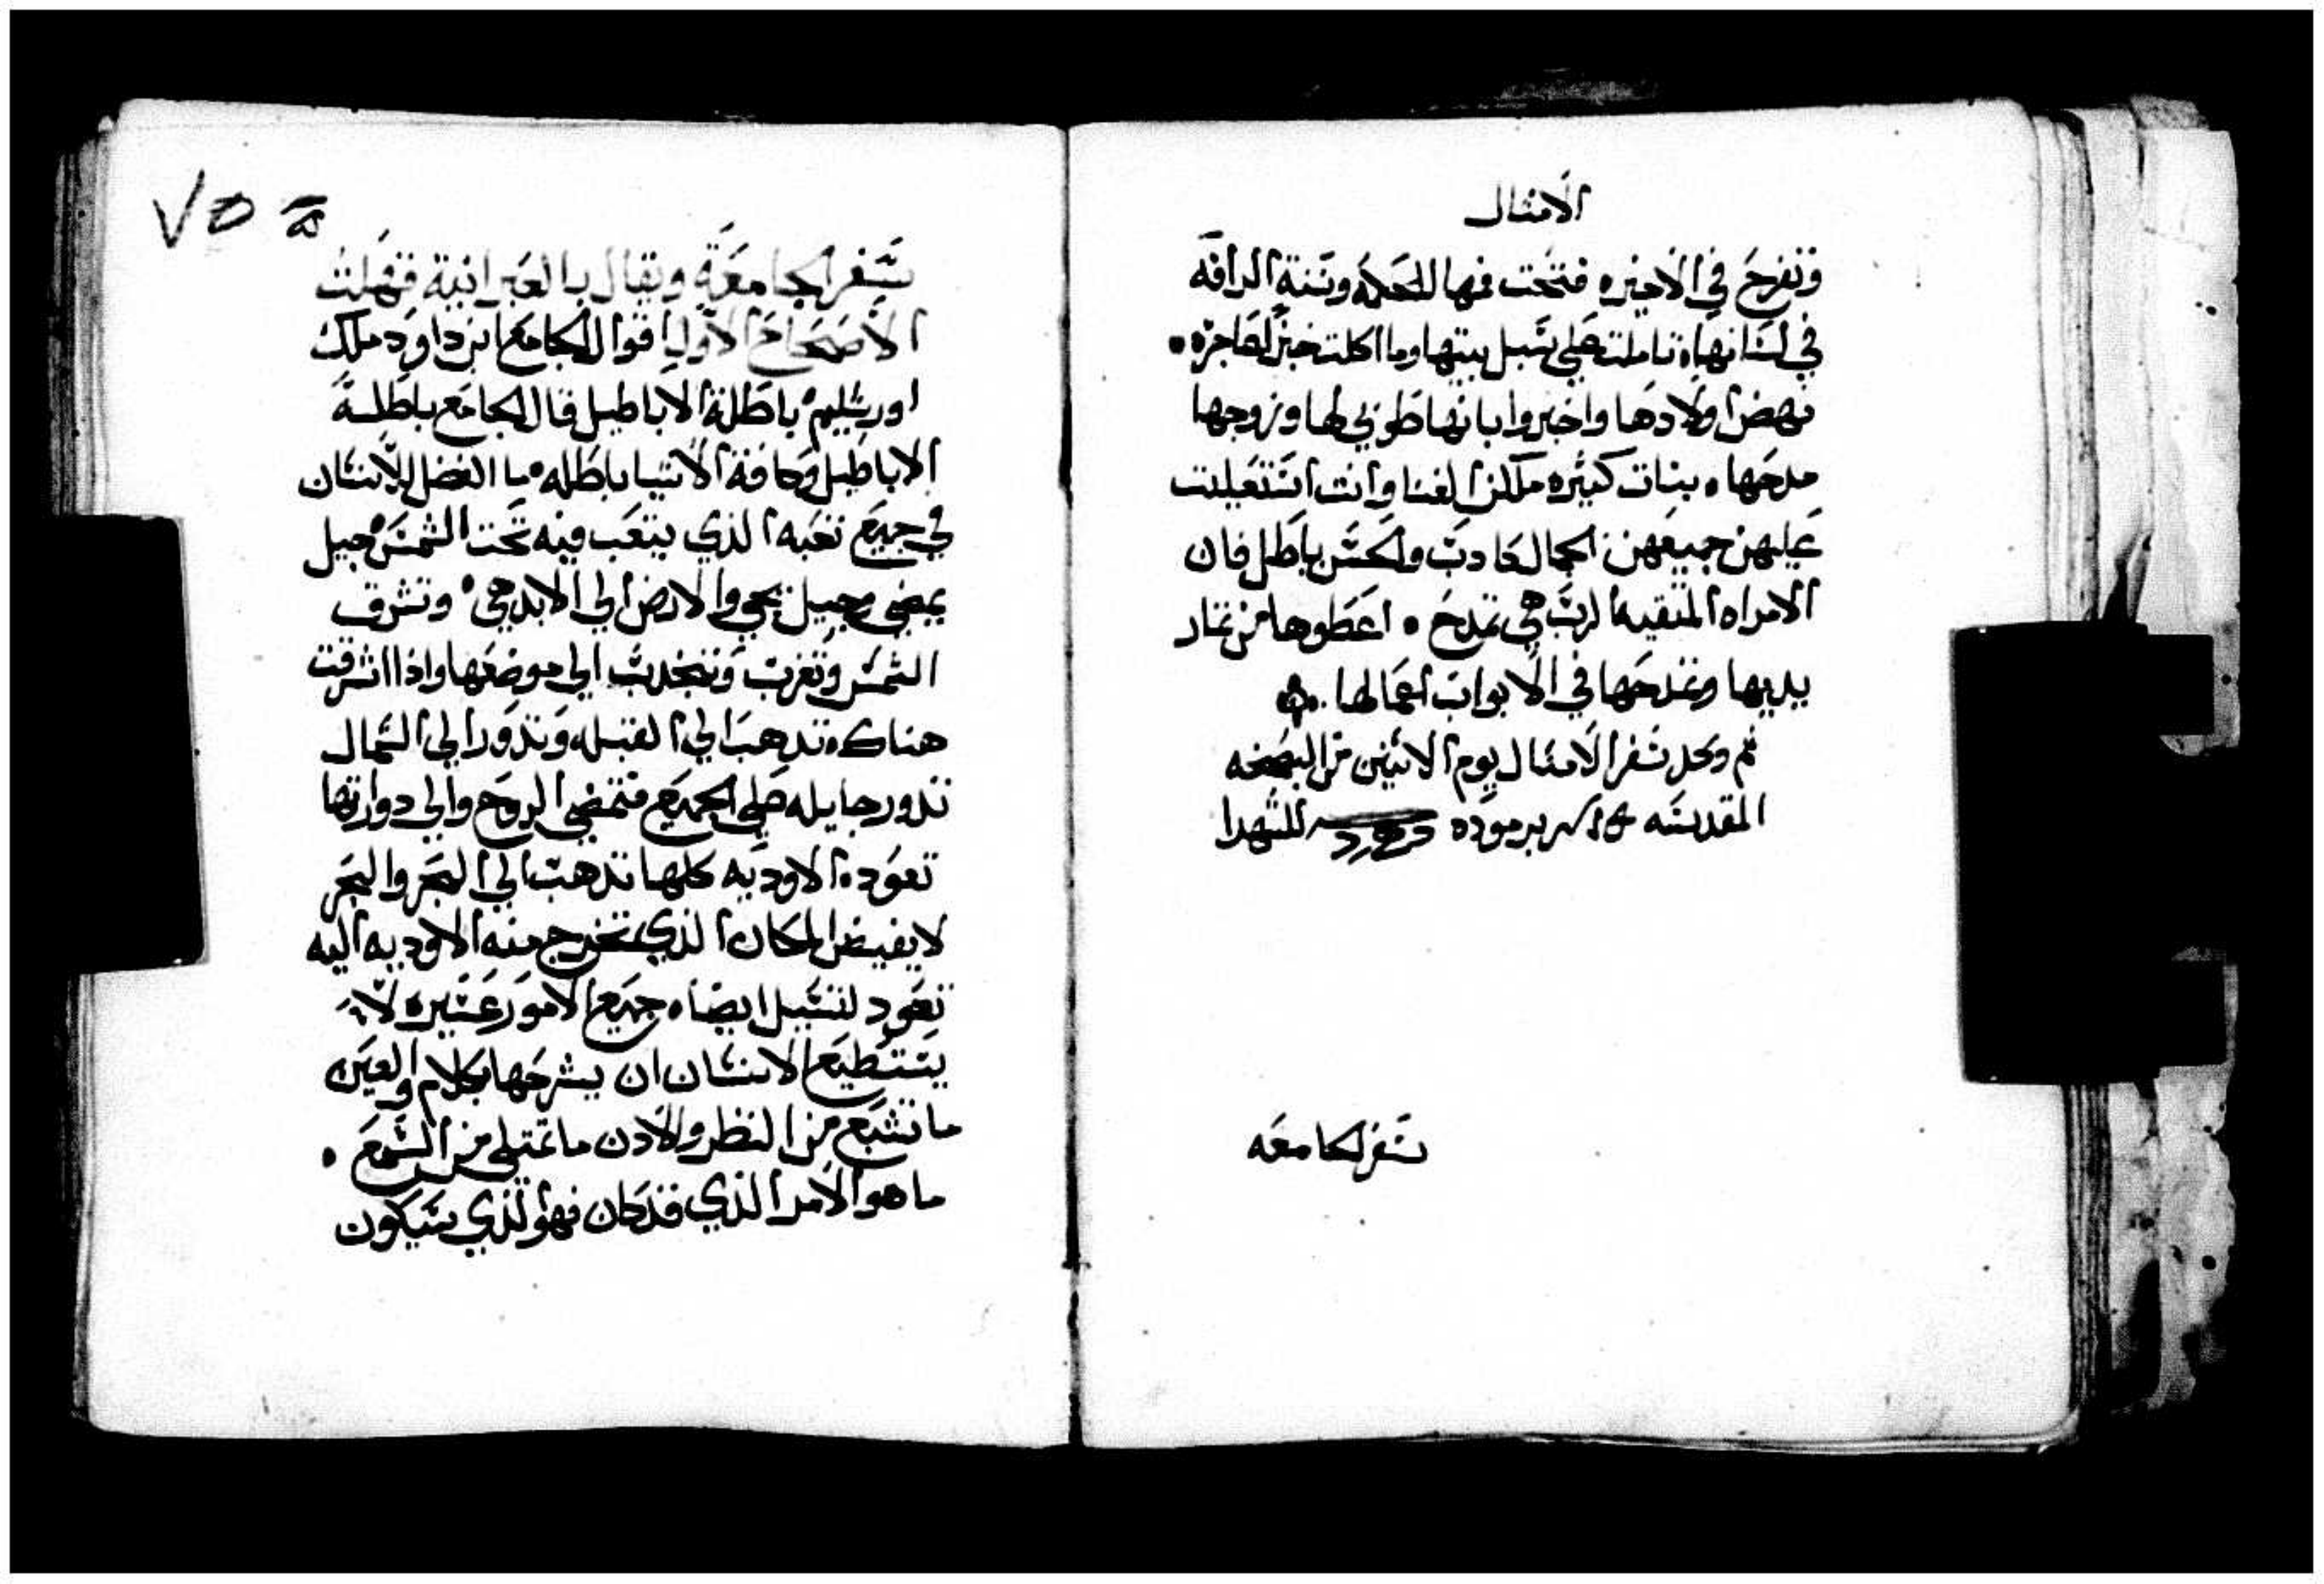 الامثال
وتفرح في الاخير فتحت فمها للحكمه وسنة الرافه
في لسانها تاملت علي سبل بيتها وما اكلت خبز العاجزه
نهض اولادها واخبروا بانها طوبي لها وزوجها
مدحها بنات كثيره ملكن الغنا وانت استعليت
عليهن جميعهن الجمال كادب والحسن باطل فان
الامراه المتقيه الرب هي تمدح اعطوها من تمار
يديها وتمدحها في الابواب اعمالها
تم وكمل سفر الامثال يوم الاثنين من البصخه
المقدسه برموده للشهدا
سفر الجامعه
٧٥
سفر الجامعة ويقال بالعبرانية قهلت
الاصحاح الاول اقوال الجامع ابن داود ملك
اورشليم باطلة الاباطيل قال الجامع باطلة
الاباطيل وكافة الاشيا باطله ما الفضل للانسان
في جميع تعبه الذي يتعب فيه تحت الشمس جيل
يمضي وجيل يجي والارض الي الابد هي وتشرق
الشمس وتغرب وتنجدب الي موضعها واذا اشرقت
هناك تدهب الي القبله وتدور الي الشمال
تدور جايله علي الجميع فتمضي الروح والي دوارتها
تعود الاوديه كلها تدهب الي البحر والبحر
لا يفيض المكان الذي تخرج منه الاوديه اليه
تعود لتسيل ايضا جميع الامور عسيره لا
يستطيع الانسان ان يشرحها بكلام والعين
ما تشبع من النظر والادن ما تمتلي من السمع
ما هو الامر الذي قد كان فهو الذي سيكون